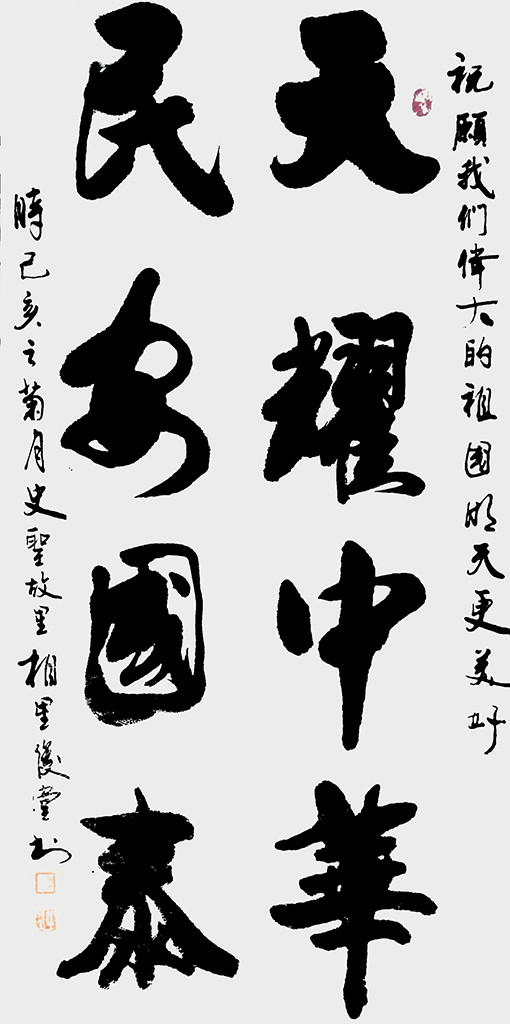 祝願我们偉大的祖國明天更美好
天耀中華
民安國泰
時己亥之菊月史聖故里相里俊堂书